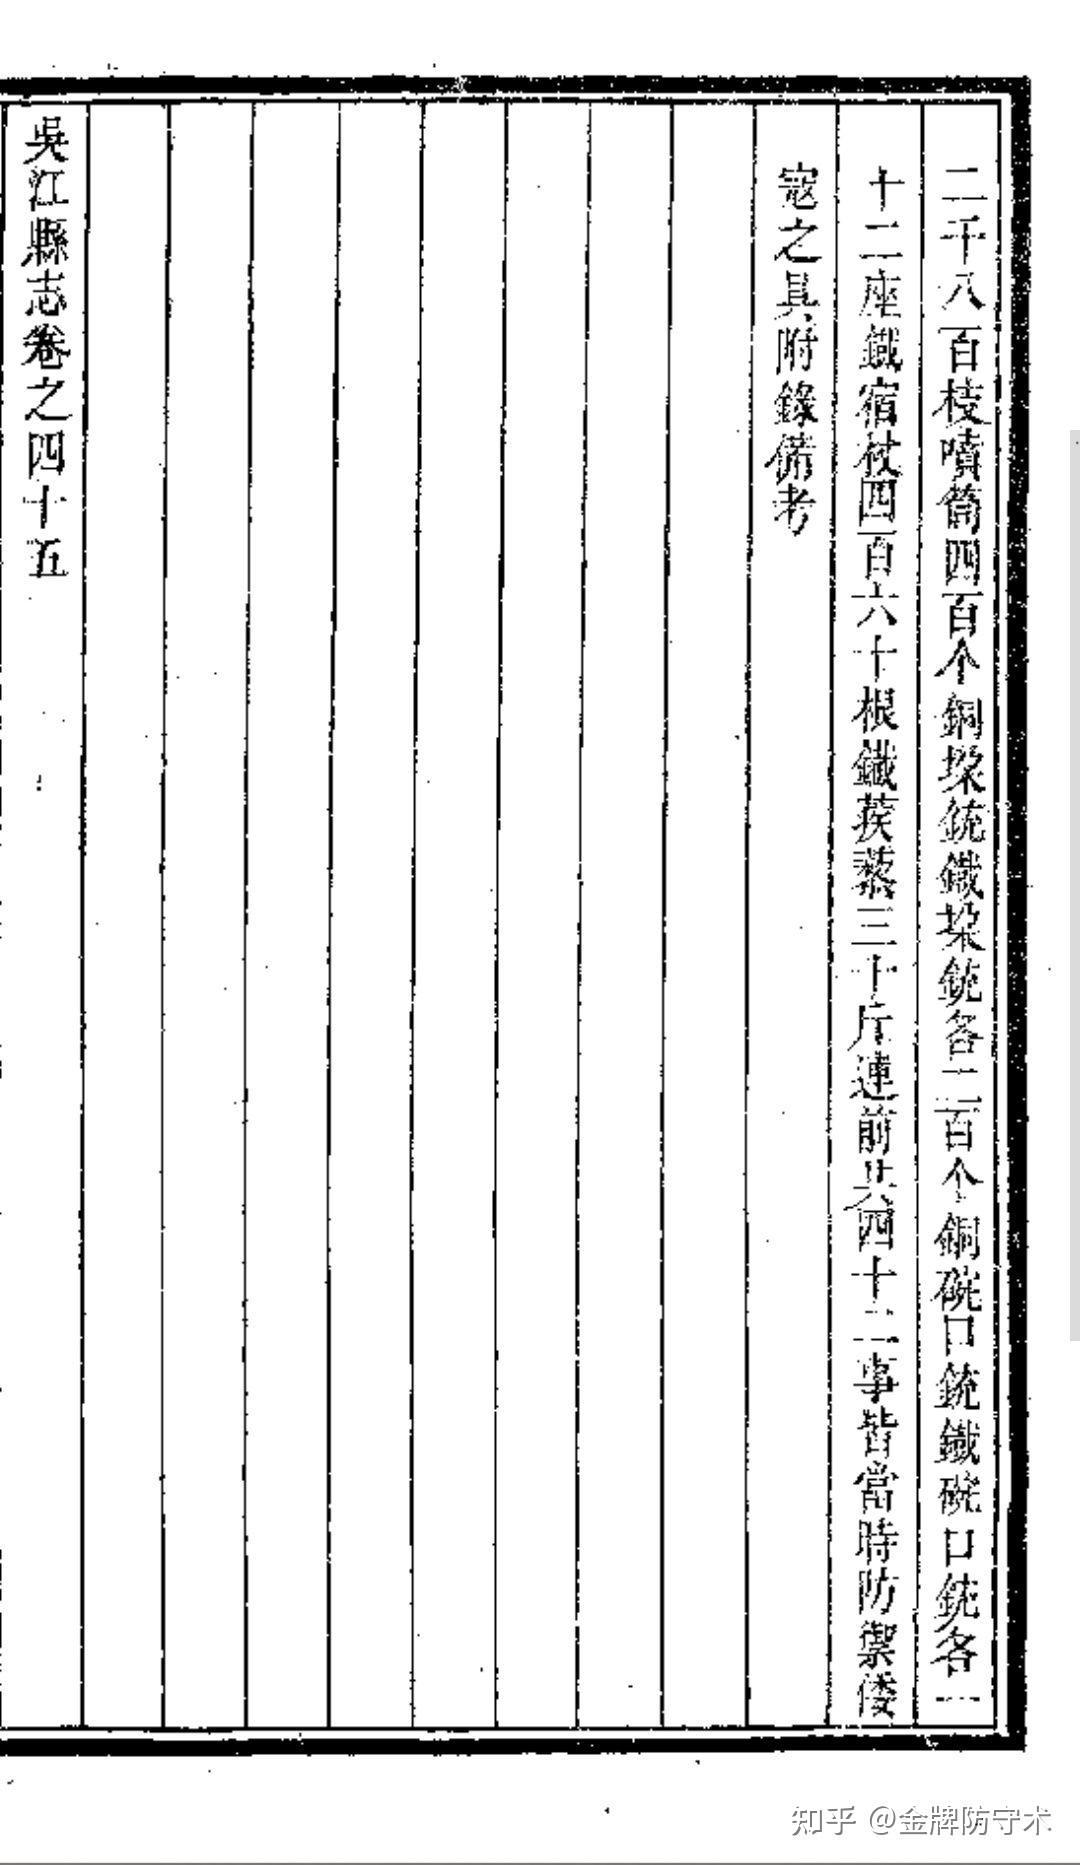 二千八百枝噴筒四百个銅垜銃鐵垜銃各二百个銅碗口銃鐵碗口銃各一
十二座鐵宿杖四百六十根鐵蒺藜三十斤連前共四十二事皆當時防禦倭
寇之具附錄備考
吳江縣志卷之四十五
知乎 @金牌防守术